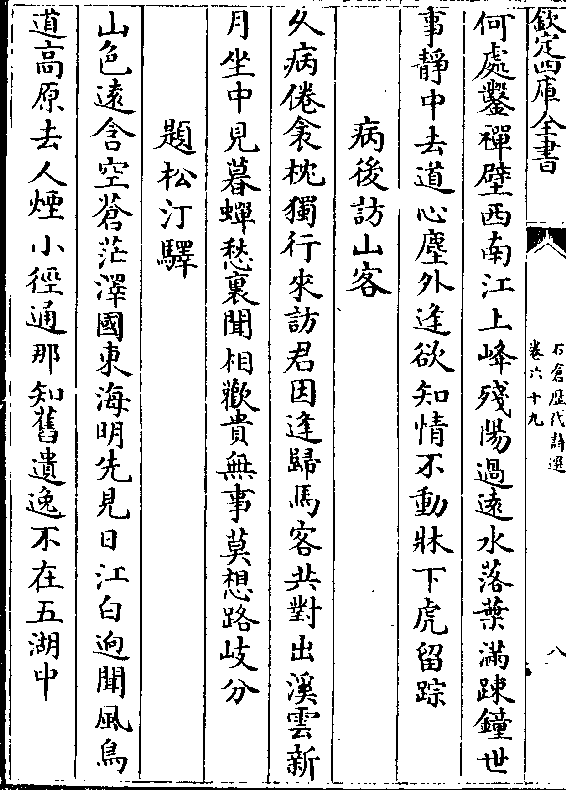 欽定四庫全書
石倉歴代詩選
卷六十九
八
何處鑿禪壁西南江上峰殘陽過遠水落葉滿踈鐘世
事靜中去道心塵外逢欲知情不動牀下虎留踪
病後訪山客
久病倦衾枕獨行來訪君因逢歸馬客共對出溪雲新
月坐中見暮蟬愁裏聞相歡貴無事莫想路歧分
題松汀驛
山色逺含空蒼茫澤國東海明先見日江白逈聞風鳥
道高原去人煙小徑通那知舊遺逸不在五湖中